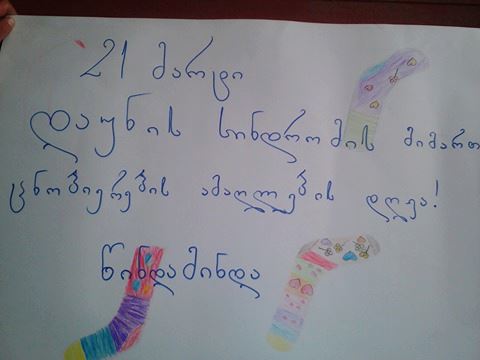 21 მარტი
დაუნის სინდრომის მიმართ
ცნობიერების ამაღლების დღეა!
წინდამინდა